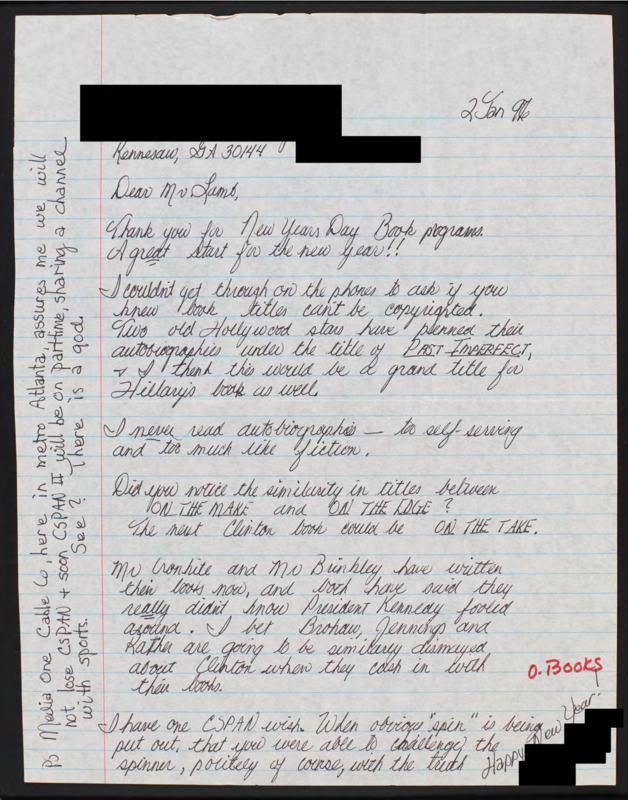 2 Jan 96
Kennesaw, GA 30144
Dear Mr Lamb,
Thank you for New Years Day Book programs.
A great start for the new year!!
I couldn't get through on the phones to ask if you
knew book titles can't be copyrighted.
Two old Hollywood stars have penned their
autobiographies under the title of PAST IMPERFECT,
+ I think this would be a grand title for
Hillary's book as well.
I never read autobiographies — to self-serving
and too much like fiction.
Did you notice the similarity in titles between
ON THE MAKE and ON THE EDGE?
The next Clinton book could be ON THE TAKE.
Mr Cronkite and Mr Brinkley have written
their books now, and both have said they
really didn't know President Kennedy fooled
around. I bet Brokaw, Jennings and
Rather are going to be similarly dismayed
about Clinton when they cash in with
their books.
O. Books
I have one CSPAN wish. When obvious "spin" is being
put out, that you were able to challenge the
spinner, politely of course, with the truth
Happy New Year!
PS Media One Cable Co, here in metro Atlanta, assures me we will
not lose CSPAN + soon CSPAN II will be on parttime, sharing a channel
with sports. See? There is a god.